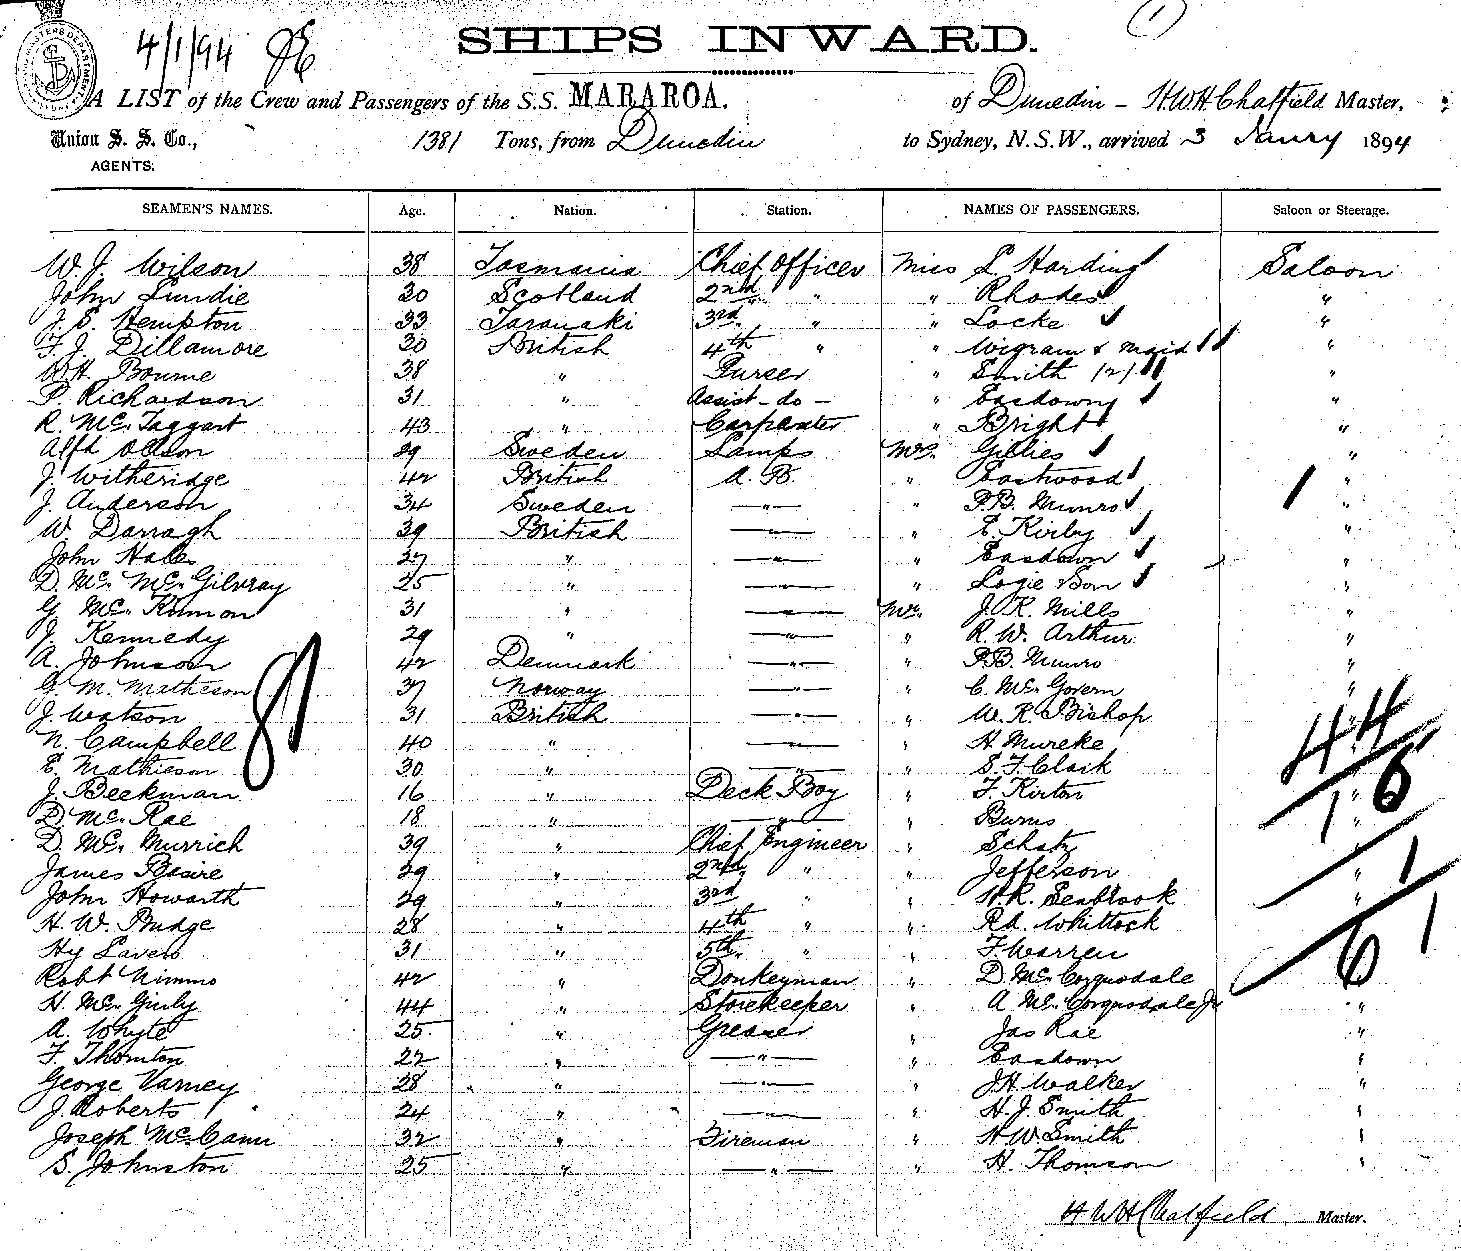 4/1/94
SHIPS INWARD.
A LIST of the Crew and Passengers of the S.S. MARAROA. of Dunedin - H.W.H. Chatfield Master,
Union S. S. Co., 1381 Tons, from Dunedin to Sydney, N.S.W., arrived 3 Janry 1894
AGENTS.
SEAMEN'S NAMES. Age. Nation. Station. NAMES OF PASSENGERS. Saloon or Steerage.
W. J. Wilson 38 Tasmania Chief Officer Miss L. Harding Saloon
John Lundie 30 Scotland 2nd " " Rhodes "
J. E. Hempton 33 Taranaki 3rd " " Locke "
F. J. Dillamore 30 British 4th " " Wigram & Maid "
W.H. Bourne 38 " Purser " Smith (2) "
P. Richardson 31 " Assist - do - " Easdown "
R. Mc. Taggart 43 " Carpenter " Bright "
Alfd Olsson 29 Sweden Lamps Mrs. Gillies "
J. Witheridge 42 British A. B. " Eastwood "
J. Anderson 34 Sweden " " P.B. Munro "
W. Darragh 39 British " " E. Kirby "
John Hales 27 " " " Easdown "
D. Mc. Mc. Gilvray 25 " " " Logie & Son "
G Mc. Kinnon 31 " " Mr. J. R. Mills "
J. Kennedy 29 " " " R. W. Arthur "
A. Johnson 42 Denmark " " P.B. Munro "
G. M. Matheson 37 Norway " " C. Mc. Govern "
J. Watson 31 British " " W. R. Bishop "
N. Campbell 40 " " " H. Mureke "
E. Mathieson 30 " " " S. F. Clark "
J. Beekman 16 " Deck Boy " F. Kirton "
D. Mc. Rae 18 " " " Burns "
D. Mc. Murrich 39 " Chief Engineer " Schatz
James Basire 29 " 2nd " " Jefferson "
John Howarth 29 " 3rd " " W.R. Seabrook "
H. W. Budge 28 " 4th " " Rd. Whittock
Hy Lavers 31 " 5th " " F. Warren
Robt Nimmo 42 " Donkeyman " D. Mc. Corquodale
H. Mc. Ginly 44 " Storekeeper " A Mc. Corquodale Jr "
A. Whyte 25 " Greaser " Jas Rae "
F. Thornton 22 " " " Easdown "
George Varney 28 " " " J.H. Walker "
J. Roberts 24 " " " H. J. Smith "
Joseph Mc. Cann 32 " Fireman " H.W. Smith "
S. Johnston 25 " " " H. Thomson "
81
44
16
1
61
H W H Chatfield Master.